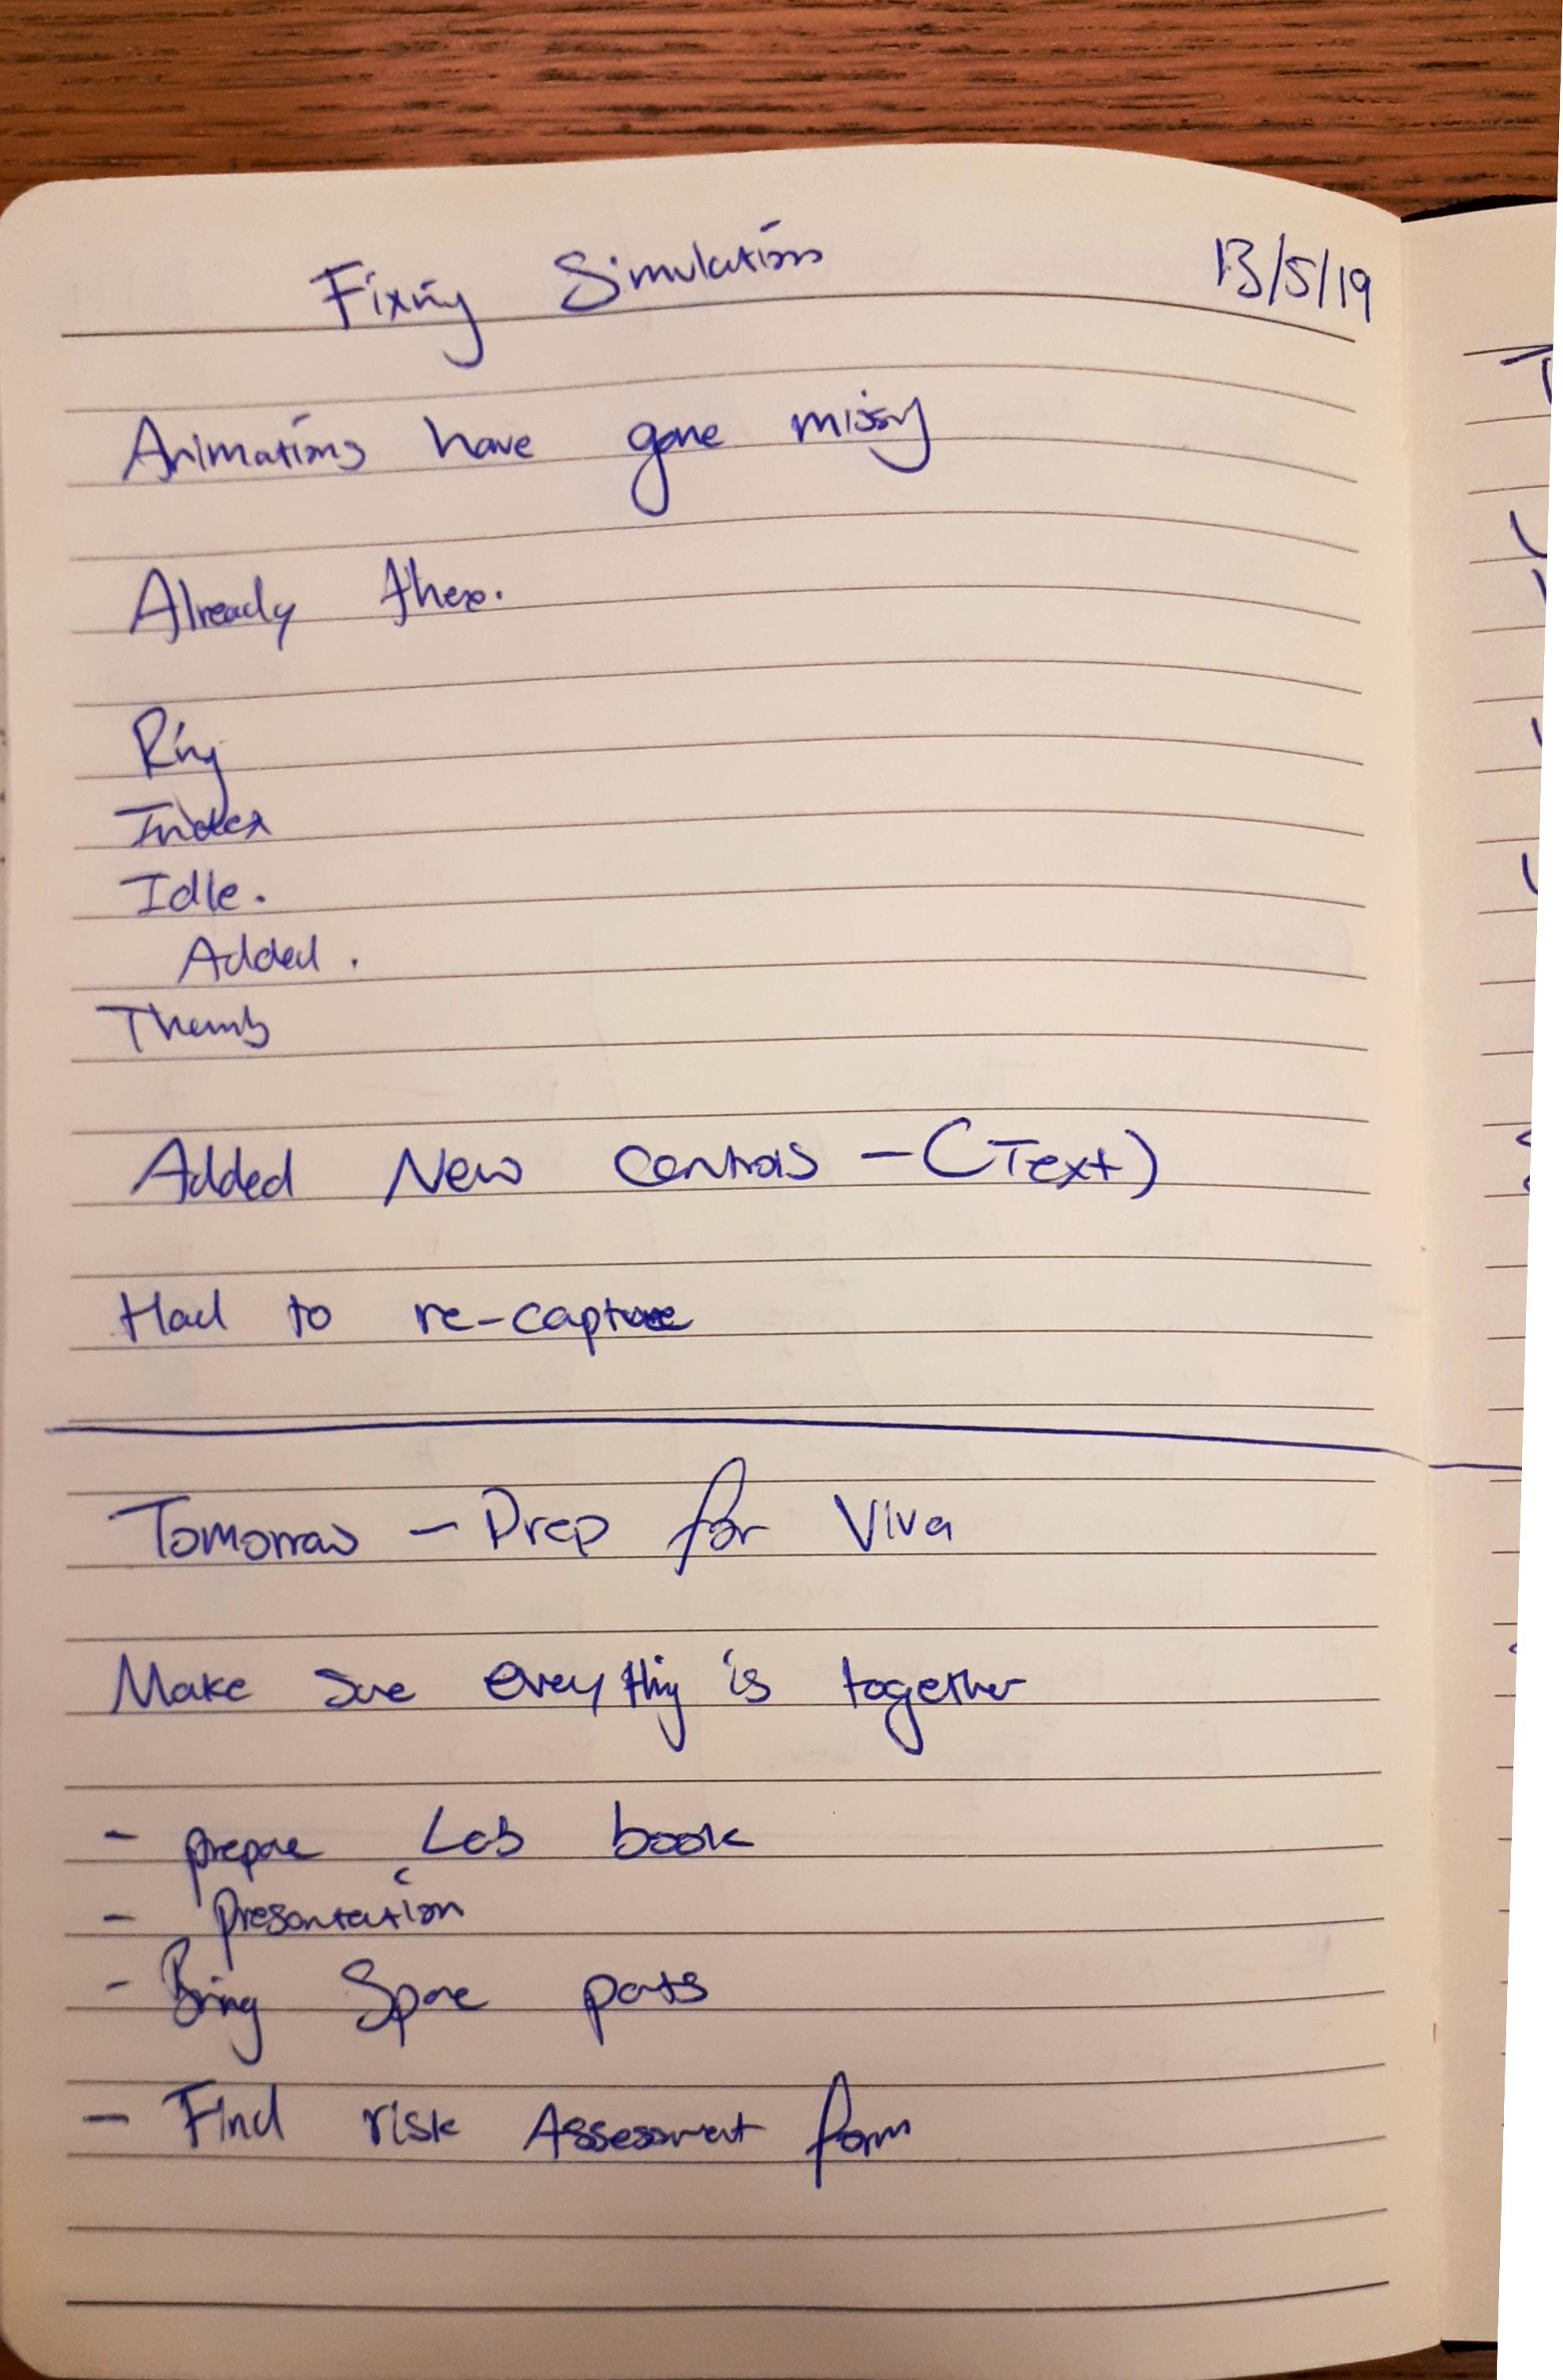 Fixing Simulations 13/5/19
Animations have gone missing
Already there.
Ring
Index
Idle.
Added.
Thumb
Added New Controls - (Text)
Had to re-capture
Tomorrow - Prep for Viva
Make sure everything is together
- prepare Lab book
- presentation
- Bring Spare parts
- Find risk Assessment form